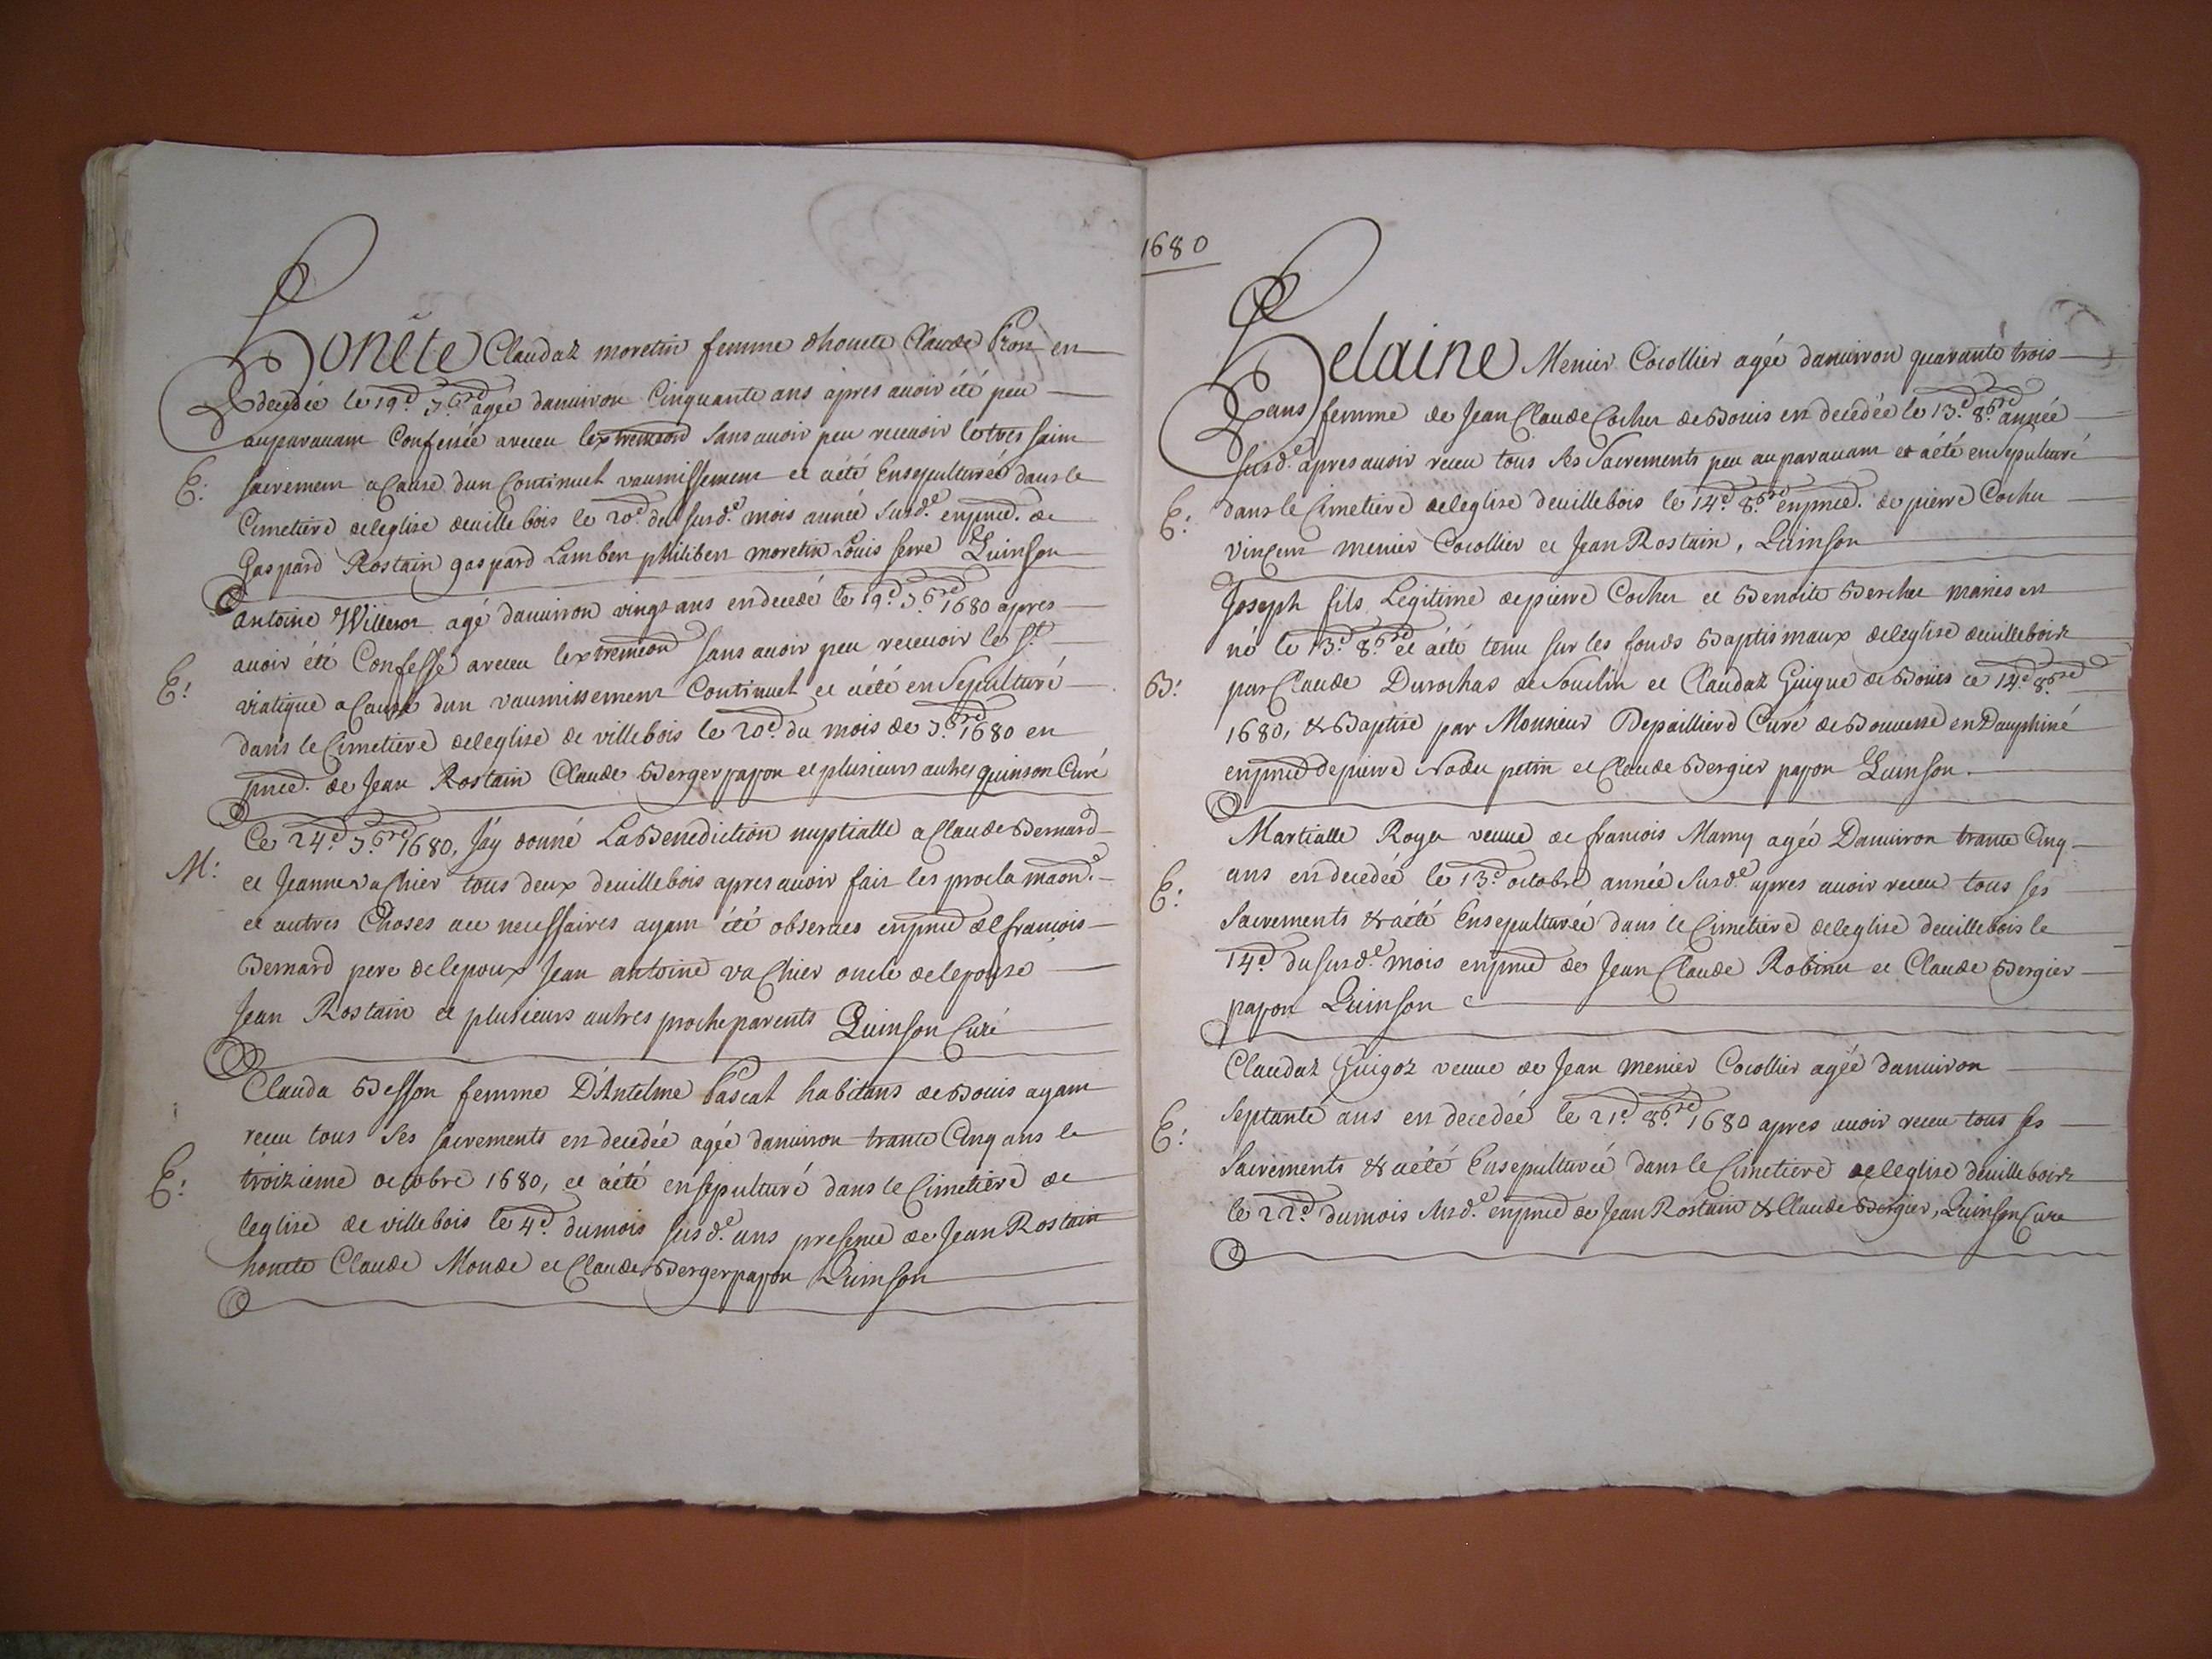 Honête Claudaz moretin femme dhonete Claude Pron en
decedée le 19.e 7.bre agée danuiron Cinquante ans apres auoir été peu
auparauant Confessée a receu lextremeond sans auoir peu receuoir le tres saint
E: sacrement a Cause dun Continuel vaumissement et aété Ensepulturée dans le
Cimetiere deleglise deuillebois le 20.e du susd.e mois année susd.e enpnce. de
Gaspard Rostain gaspard Lambert philibert moretin Louis serre Quinson
Antoine Willerot agé danuiron vingt ans en decedé le 19.e 7.bre 1680 apres
auoir été Confessé a receu lextremeond sans auoir peu receuoir le S.t
E: viatique a Cause dun vaumissement Continuel et aété ensepulturé
dans le Cimetiere deleglise de villebois le 20.e du mois de 7.bre 1680 en
pnce. de Jean Rostain Claude Berger papon et plusieurs autres quinson Curé
Ce 24.e 7.bre 1680, Jay donné La Benediction nuptialle a Claude Bernard
M: et Jeanne vachier tous deux deuillebois apres auoir fait les proclamaon.s
et autres Choses ace necessaires ayant été obserues enpnce de francois
Bernard pere delepoux Jean antoine vachier oncle delepouse
Jean Rostain et plusieurs autres proche parents Quinson Curé
Clauda Besson femme D'Antelme Pascal habitans de Bouis ayant
receu tous ses sacrements en decedée agée danuiron trante Cinq ans le
E: troizieme octobre 1680, et aété ensepulturé dans le Cimetiere de
leglise de villebois le 4.e dumois susd.e ans presence de Jean Rostain
honete Claude Monde et Claude Berger papon Quinson
1680
Helaine Menier Cocollier agée danuiron quarante trois
ans femme de Jean Claude Cocher de Bouis en decedée le 13.e 8.bre année
susd.e apres auoir receu tous ses Sacrements peu auparauant et aété ensepulturé
E: dans le Cimetiere deleglise deuillebois le 14.e 8.bre enpnce. de pierre Cocher
vincent menier Cocollier et Jean Rostain, Quinson
Joseph fils Legitime depierre Cocher et Benoite Bercher maries en
né le 13.e 8.bre et aété tenu sur les fonds Baptismaux deleglise deuillebois
B: par Claude Durochas de Souclin et Claudaz Guigue de Bouis ce 14.e 8.bre
1680, & Baptisé par Monsieur Depaillierd Curé de Bouuesse en Dauphiné
enpnce depierre Nodet petin et Claude Bergier papon Quinson.
Martialle Roger veuue de francois Marny agée Danuiron trante Cinq
E: ans en decedée le 13.e octobre année susd.e apres auoir receu tous ses
Sacrements & aété Ensepulturée dans le Cimetiere deleglise deuillebois le
14.e du susd.e mois enpnce de Jean Claude Robinet et Claude Bergier
papon Quinson
Claudaz Guigoz veuue de Jean menier Cocollier agée danuiron
E: septante ans en decedée le 21.e 8.bre 1680 apres auoir receu tous ses
Sacrements & aété Ensepulturée dans le Cimetiere deleglise deuillebois
le 22.e dumois susd.e enpnce de Jean Rostain & Claude Bergier, Quinson Cure